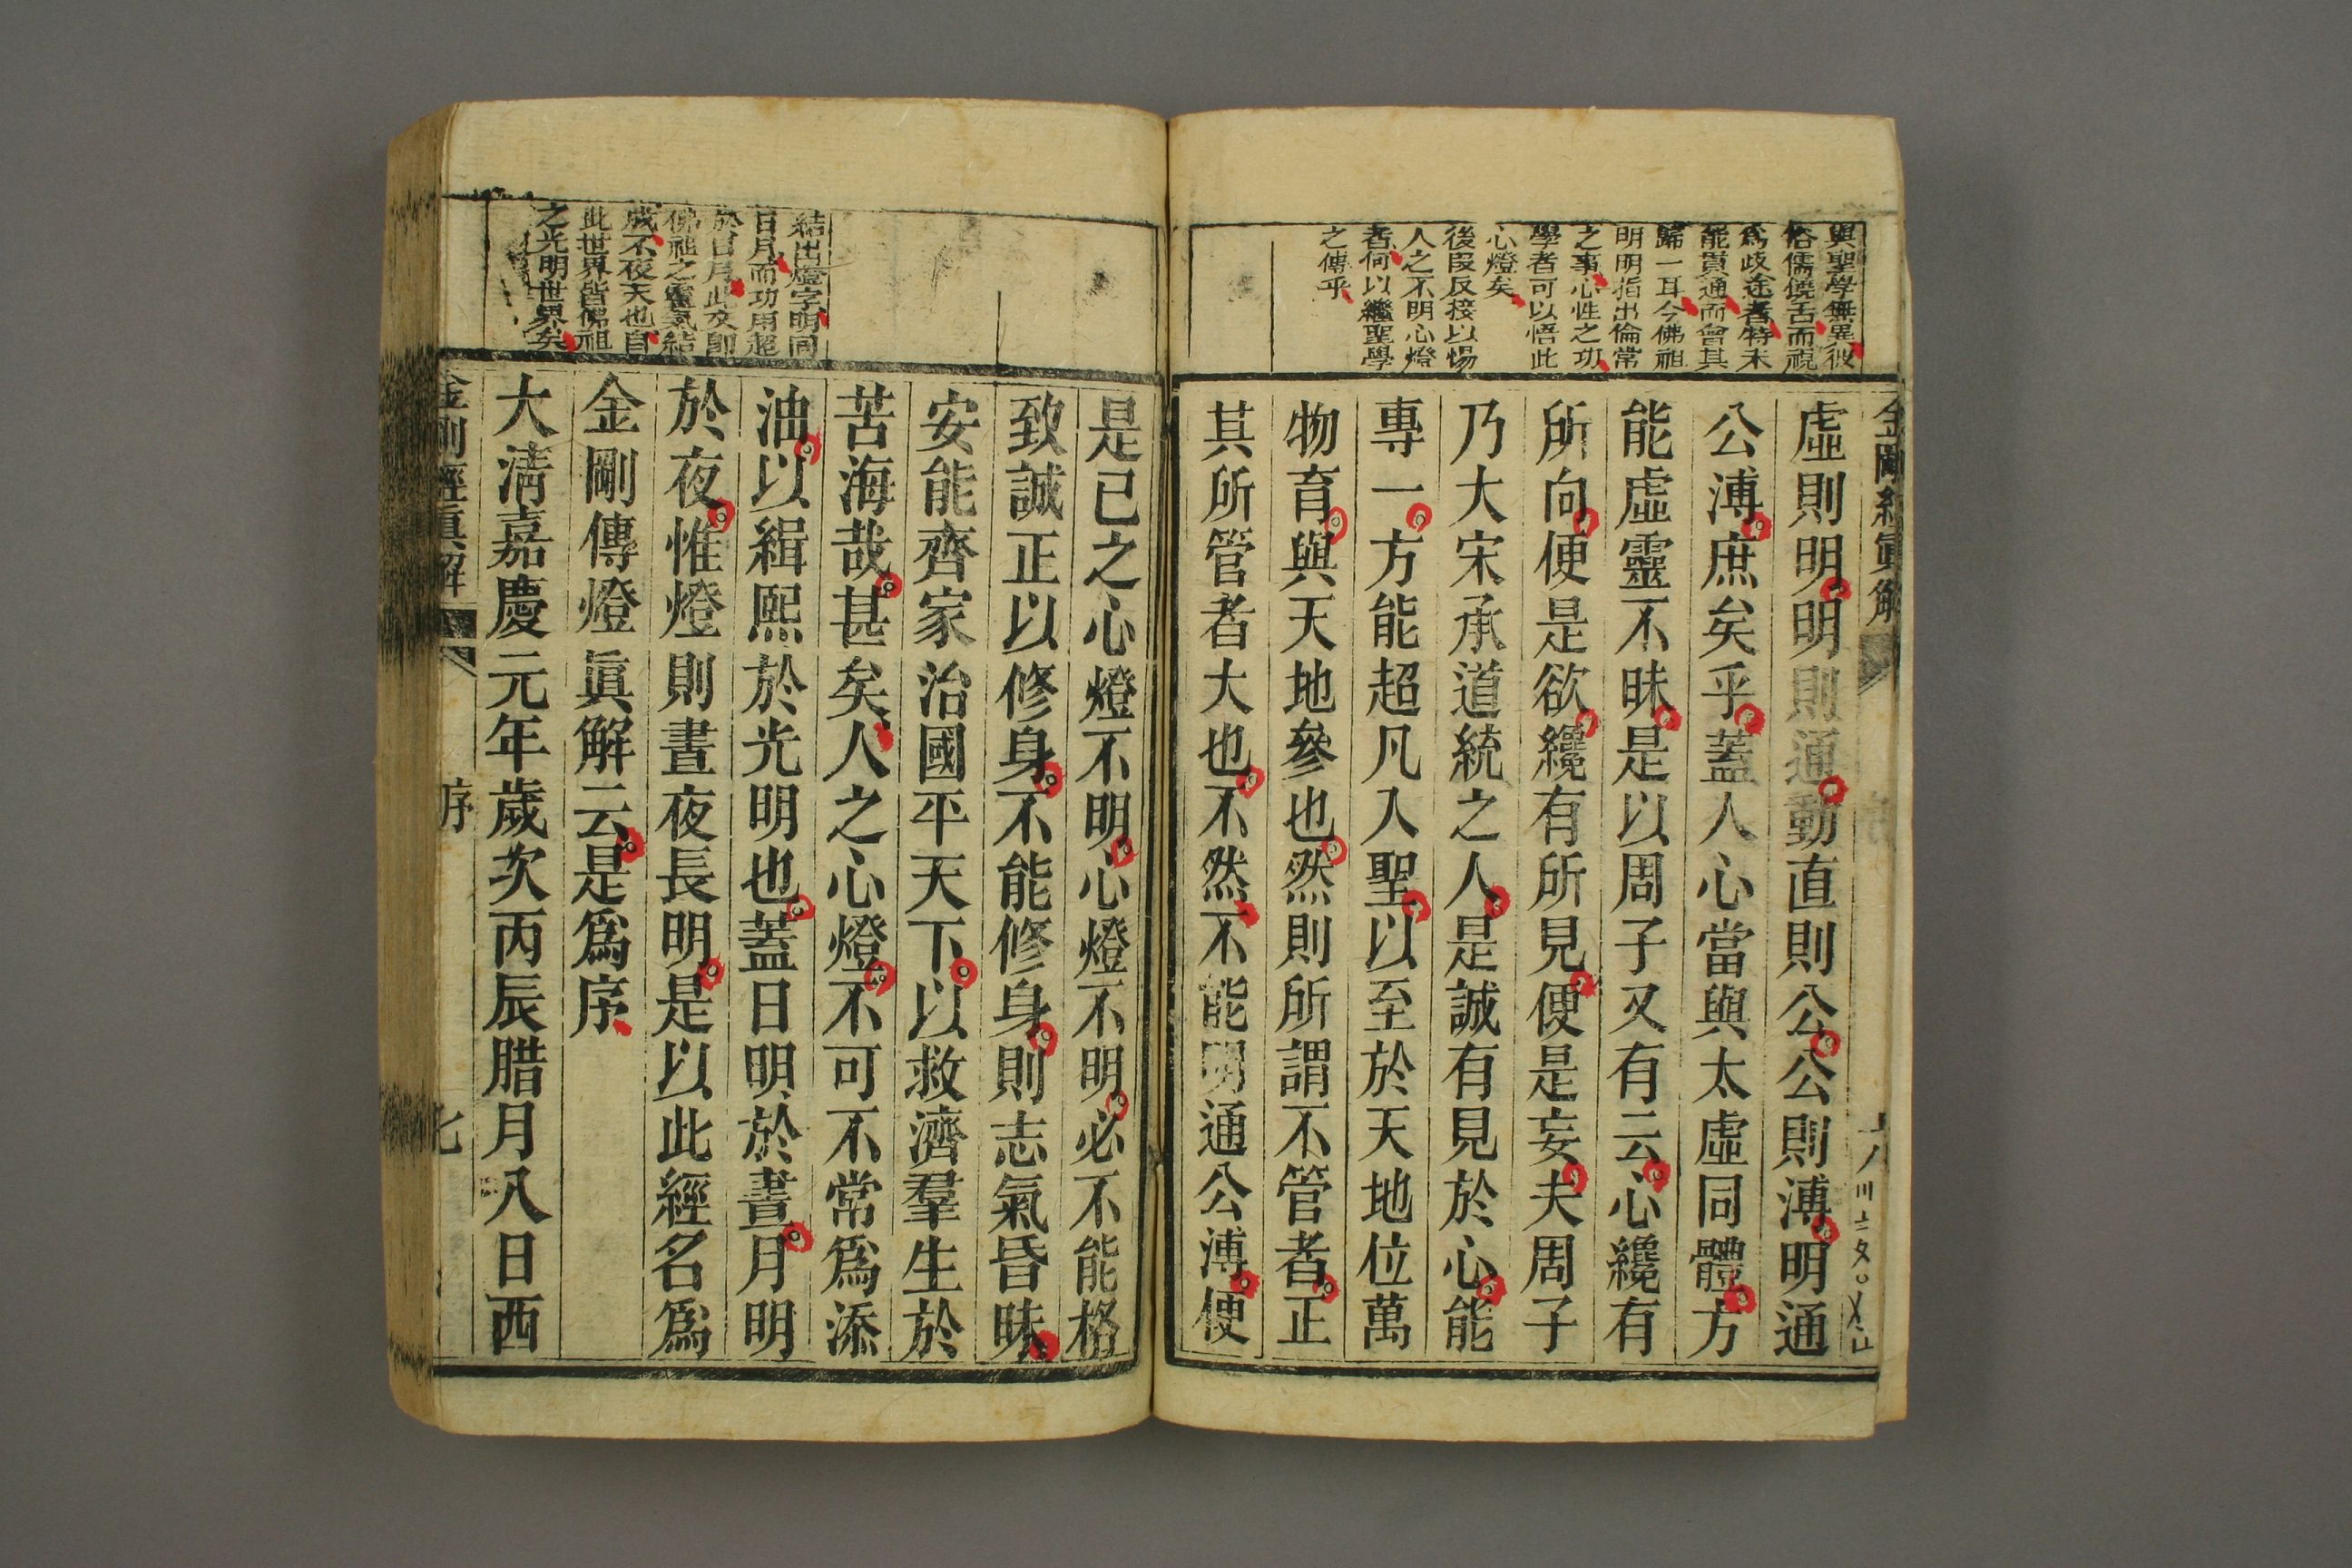 金剛經眞解
與聖學無異彼
俗儒饒舌而視
爲歧途者特未
能貫通而會其
歸一耳今佛祖
明明指出倫常
之事心性之功
學者可以悟此
心燈矣
後段反接以惕
人之不明心燈
者何以繼聖學
之傳乎
虛則明明則通動直則公公則溥明通
公溥庶矣乎蓋人心當與太虛同體方
能虛靈不昧是以周子又有云心纔有
所向便是欲纔有所見便是妄夫周子
乃大宋承道統之人是誠有見於心能
專一方能超凡入聖以至於天地位萬
物育與天地參也然則所謂不管者正
其所管者大也不然不能明通公溥便
結出燈字明同
日月而功用超
於日月此文卽
佛祖之靈氣結
成不夜天也自
此世界皆佛祖
之光明世界矣
是已之心燈不明心燈不明必不能格
致誠正以修身不能修身則志氣昏昧
安能齊家治國平天下以救濟羣生於
苦海哉甚矣人之心燈不可不常爲添
油以緝熙於光明也蓋日明於晝月明
於夜惟燈則晝夜長明是以此經名爲
金剛傳燈眞解云是爲序
大淸嘉慶元年歲次丙辰臘月八日西
金剛經眞解
序
七